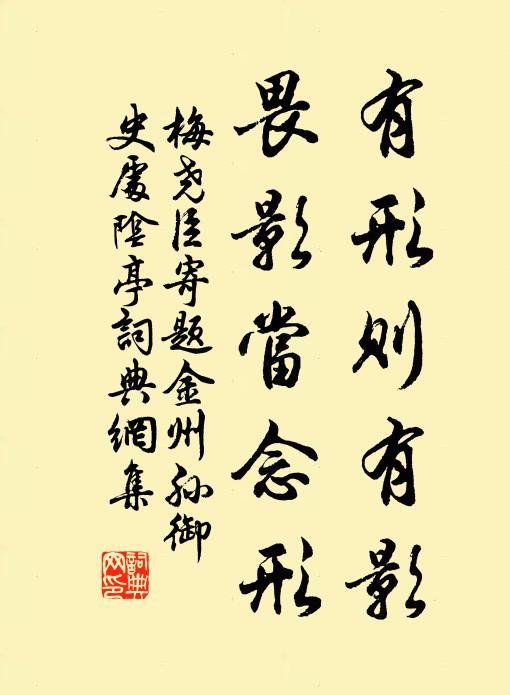 有形则有影
畏影當念形
梅尧臣寄题金州孙御
史處陰亭詞典網集
詞典网印